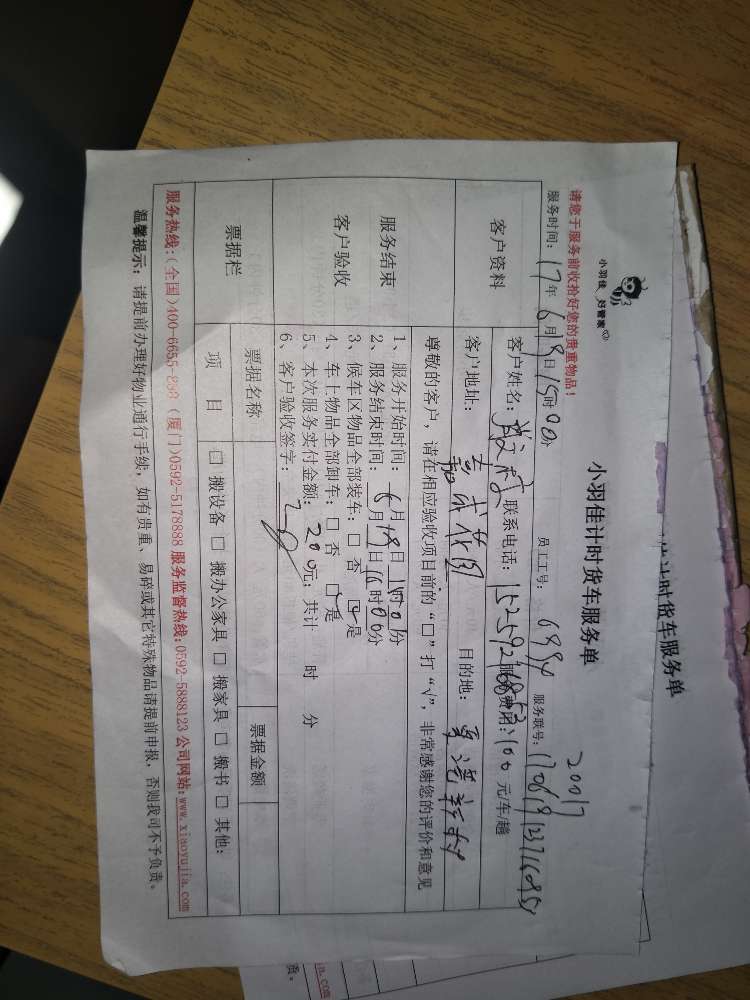 小羽佳 好管家
小羽佳计时货车服务单
请您于服务前收拾好您的贵重物品！
20017
服务时间：17年6月19日15时00分 员工工号：6994 服务联号：
客户资料
客户姓名： 联系电话： 服务费用：100元/车/趟
客户地址： 目的地：
尊敬的客户，请在相应验收项目前的“□”打“√”，非常感谢您的评价和意见
服务结束
客户验收
1、服务开始时间：6月19日 时 分
2、服务结束时间：6月19日16时00分
3、候车区物品全部装车：□ 否 ☑ 是
4、车上物品全部卸车：□ 否 ☑ 是
5、本次服务实付金额：200元；共计 时 分
6、客户验收签字：
票据栏
票据名称 票据金额
项 目 □ 搬设备 □ 搬办公家具 □ 搬家具 □ 搬书 □ 其他：
服务热线：(全国)400-6655-898 (厦门)0592-5178888 服务监督热线：0592-5888123 公司网站：www.xiaoyujia.com
温馨提示：请提前办理好物业通行手续，如有贵重、易碎或其它特殊物品请提前申报，否则我司不予负责。
计时货车服务单
jia.com
责。